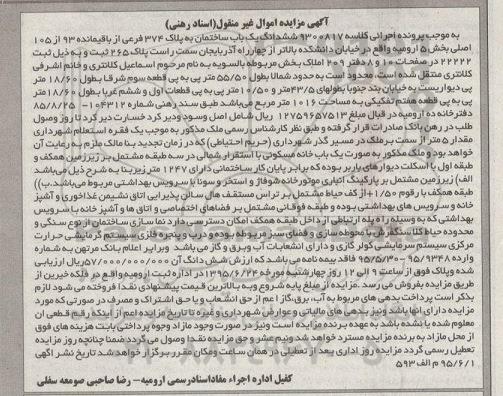 آگهی مزایده اموال غیر منقول(اسناد رهنی)
به موجب پرونده اجرائی کلاسه ۹۳۰۰۸۱۷ ششدانگ یک باب ساختمان به پلاک ۳۷۴ فرعی از باقیمانده ۹۳ از ۱۰۵
اصلی بخش ۵ ارومیه واقع در خیابان دانشکده بالاتر از چهارراه آذربایجان سمت راست پلاک ۲۶۵ ثبت و به ذیل ثبت
۲۲۲۲۲ در صفحات ۱۰ و ۸ دفتر ۲۰۹ املاک بخش مربوطه بالسویه به نام مرحوم اسماعیل کلانتری و خانم اشرفی
کلانتری منتقل شده است، محدود است به حدود شمالا بطول ۵۵/۵۰ متر پی به پی قطعه سوم شرقا بطول ۱۸/۶۰ متر
پی دیواریست به خیابان بند جنوبا بطولهای ۴۳/۵ متر و ۱۰/۵۰ متر پی به پی قطعات اول و ششم غربا بطول ۱۸/۶۰ متر
پی به پی قطعه هفتم تفکیکی به مساحت ۱۰۱۶ متر مربع می‌باشد طبق سند رهنی شماره ۱۰۴۳۱۲- ۸۵/۸/۲۵
دفترخانه ده ارومیه در قبال مبلغ ۱۲۷۵۹۶۵۷۵۱۳ ریال شامل اصل وسود ودیر کرد خسارت دیر کرد تا روز وصول
طلب در رهن بانک صادرات قرار گرفته و طبق نظر کارشناس رسمی ملک مذکور به موجب یک فقره استعلام شهرداری
مقدار ۵ متر از سمت بر ملک در مسیر گذر شهرداری (حریم احتیاطی) که در زمان تجدید بنا مالک ملزم به رعایت آن
خواهد بود و ملک مذکور به صورت یک باب خانه مسکونی با استقرار شمالی در سه طبقه مشتمل بر زیرزمین همکف و
طبقه اول با اسکلت دیوارهای باربر بوده که برابر پایان کار ساختمانی دارای ۱۲۴۷ متر زیربنا به شرح ذیل می‌باشد
الف) زیرزمین مشتمل بر پارکینگ انباری موتورخانه شوفاژ و استخر و سونا با سرویس بهداشتی مربوط می‌باشد. ب))
طبقه همکف با رقوم ۱/۵۰+ از کف حیاط مشتمل بر تراس مسقف هال سالن پذیرایی اتاق نشیمن غذاخوری و آشپز
خانه و سرویس های بهداشتی بوده و طبقه فوقانی مشتمل بر فضاهای اختصاصی و اتاق ها و آشپز خانه با سرویس
بهداشتی که به وسیله راه پله ارتباطی از داخل طبقه همکف امکان دسترسی دارد نما سازی ساختمان از نوع سنگی و
محدوده حیاط کلا سنگفرش با محوطه سازی و فضای سبز مربوطه بوده و درب و پنجره فلزی سیستم گرمایشی حرارت
مرکزی سیستم سرمایشی کولر گازی و دارای انشعابات آب وبرق و گاز می باشد وبرابر اعلام بانک مرتهن به شماره
وارده ۹۵/۹۳۴۸ - ۹۵/۵/۳۰ فاقد بیمه نامه می باشد که ارزش شش دانگ آن ۵۷/۰۰۰/۰۰۰/۰۰۰ ریال ارزیابی
شده وپلاک فوق از ساعت ۹ الی ۱۲ روز چهارشنبه مورخه ۱۳۹۵/۶/۲۴ در اداره ثبت ارومیه واقع در فلکه خیرین از
طریق مزایده بفروش می رسد. مزایده از مبلغ پایه شروع وبه بالاترین قیمت پیشنهادی نقدا فروخته می شود لازم
بذکر است پرداخت بدهی های مربوط به آب، برق، گاز اعم از حق انشعاب و یا حق اشتراک و مصرف در صورتی که مورد
مزایده دارای انها باشد ونیز بدهی های مالیاتی و عوارض شهرداری و غیره تا تاریخ مزایده اعم از اینکه رقم قطعی ان
معلوم شده یا نشده باشد به عهده برنده مزایده است ونیز در صورت وجود مازاد وجوه پرداختی بابت هزینه های فوق
از محل مازاد به برنده مزایده مسترد خواهد شد ونیم عشر و حق مزایده نقدا وصول می گردد ضمنا چنانچه روز مزایده
تعطیل رسمی گردد مزایده روز اداری بعد از تعطیلی در همان ساعت ومکان مقرر برگزار خواهد شد تاریخ نشر اگهی
۹۵/۶/۱ م الف ۵۹۳
کفیل اداره اجراء مفاد اسناد رسمی ارومیه- رضا صاحبی صومعه سفلی